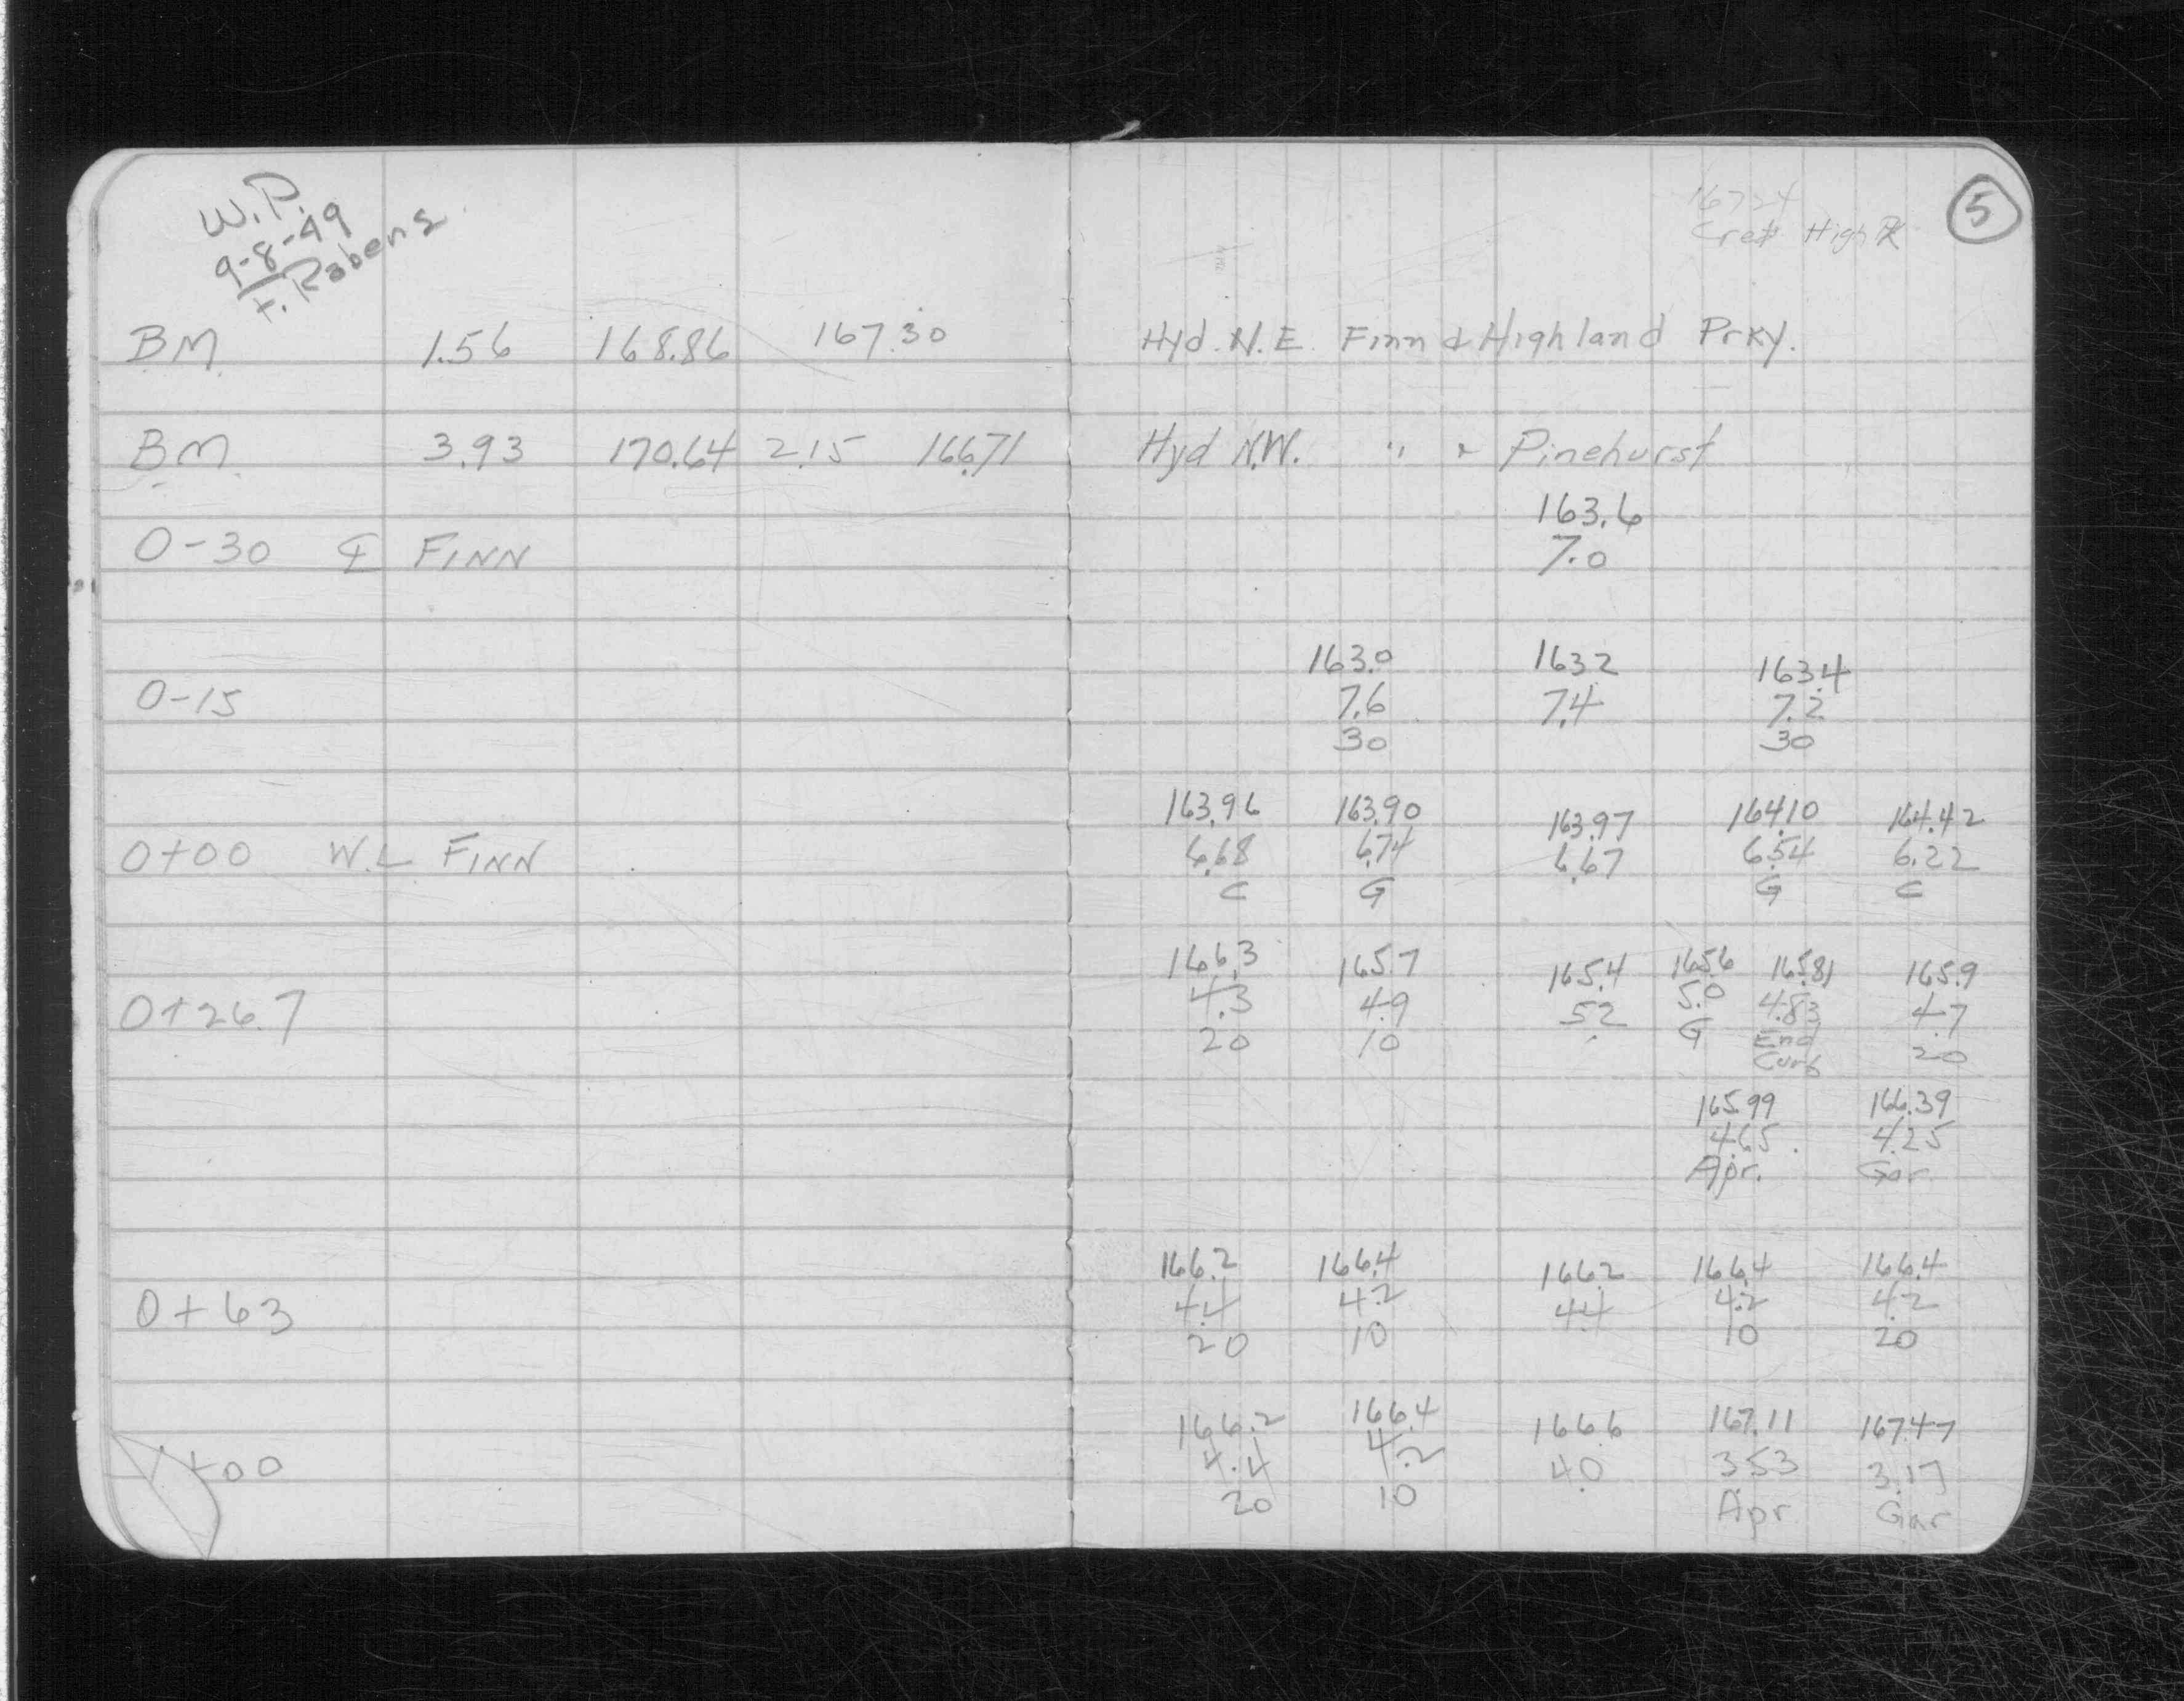 W.P.
9-8-49
F. Rabens
5
167.24
Crest High Pk
BM 1.56 168.86 167.30 Hyd. N.E. Finn & Highland Prky.
BM 3.93 170.64 2.15 166.71 Hyd N.W. " " Pinehurst
163.6
0-30 ℄ FINN 7.0
163.0 163.2 163.4
0-15 7.6 7.4 7.2
30 30
163.96 163.90 163.97 164.10 164.42
0+00 W.L FINN 6.68 6.74 6.67 6.54 6.22
C G G C
166.3 165.7 165.4 165.6 165.81 165.9
0+26.7 4.3 4.9 5.2 5.0 4.83 4.7
20 10 G End Curb 20
165.99 166.39
4.65 4.25
Apr. Gar.
166.2 166.4 166.2 166.4 166.4
0+63 4.4 4.2 4.4 4.2 4.2
20 10 10 20
166.2 166.4 166.6 167.11 167.47
1+00 4.4 4.2 4.0 3.53 3.17
20 10 Apr Gar